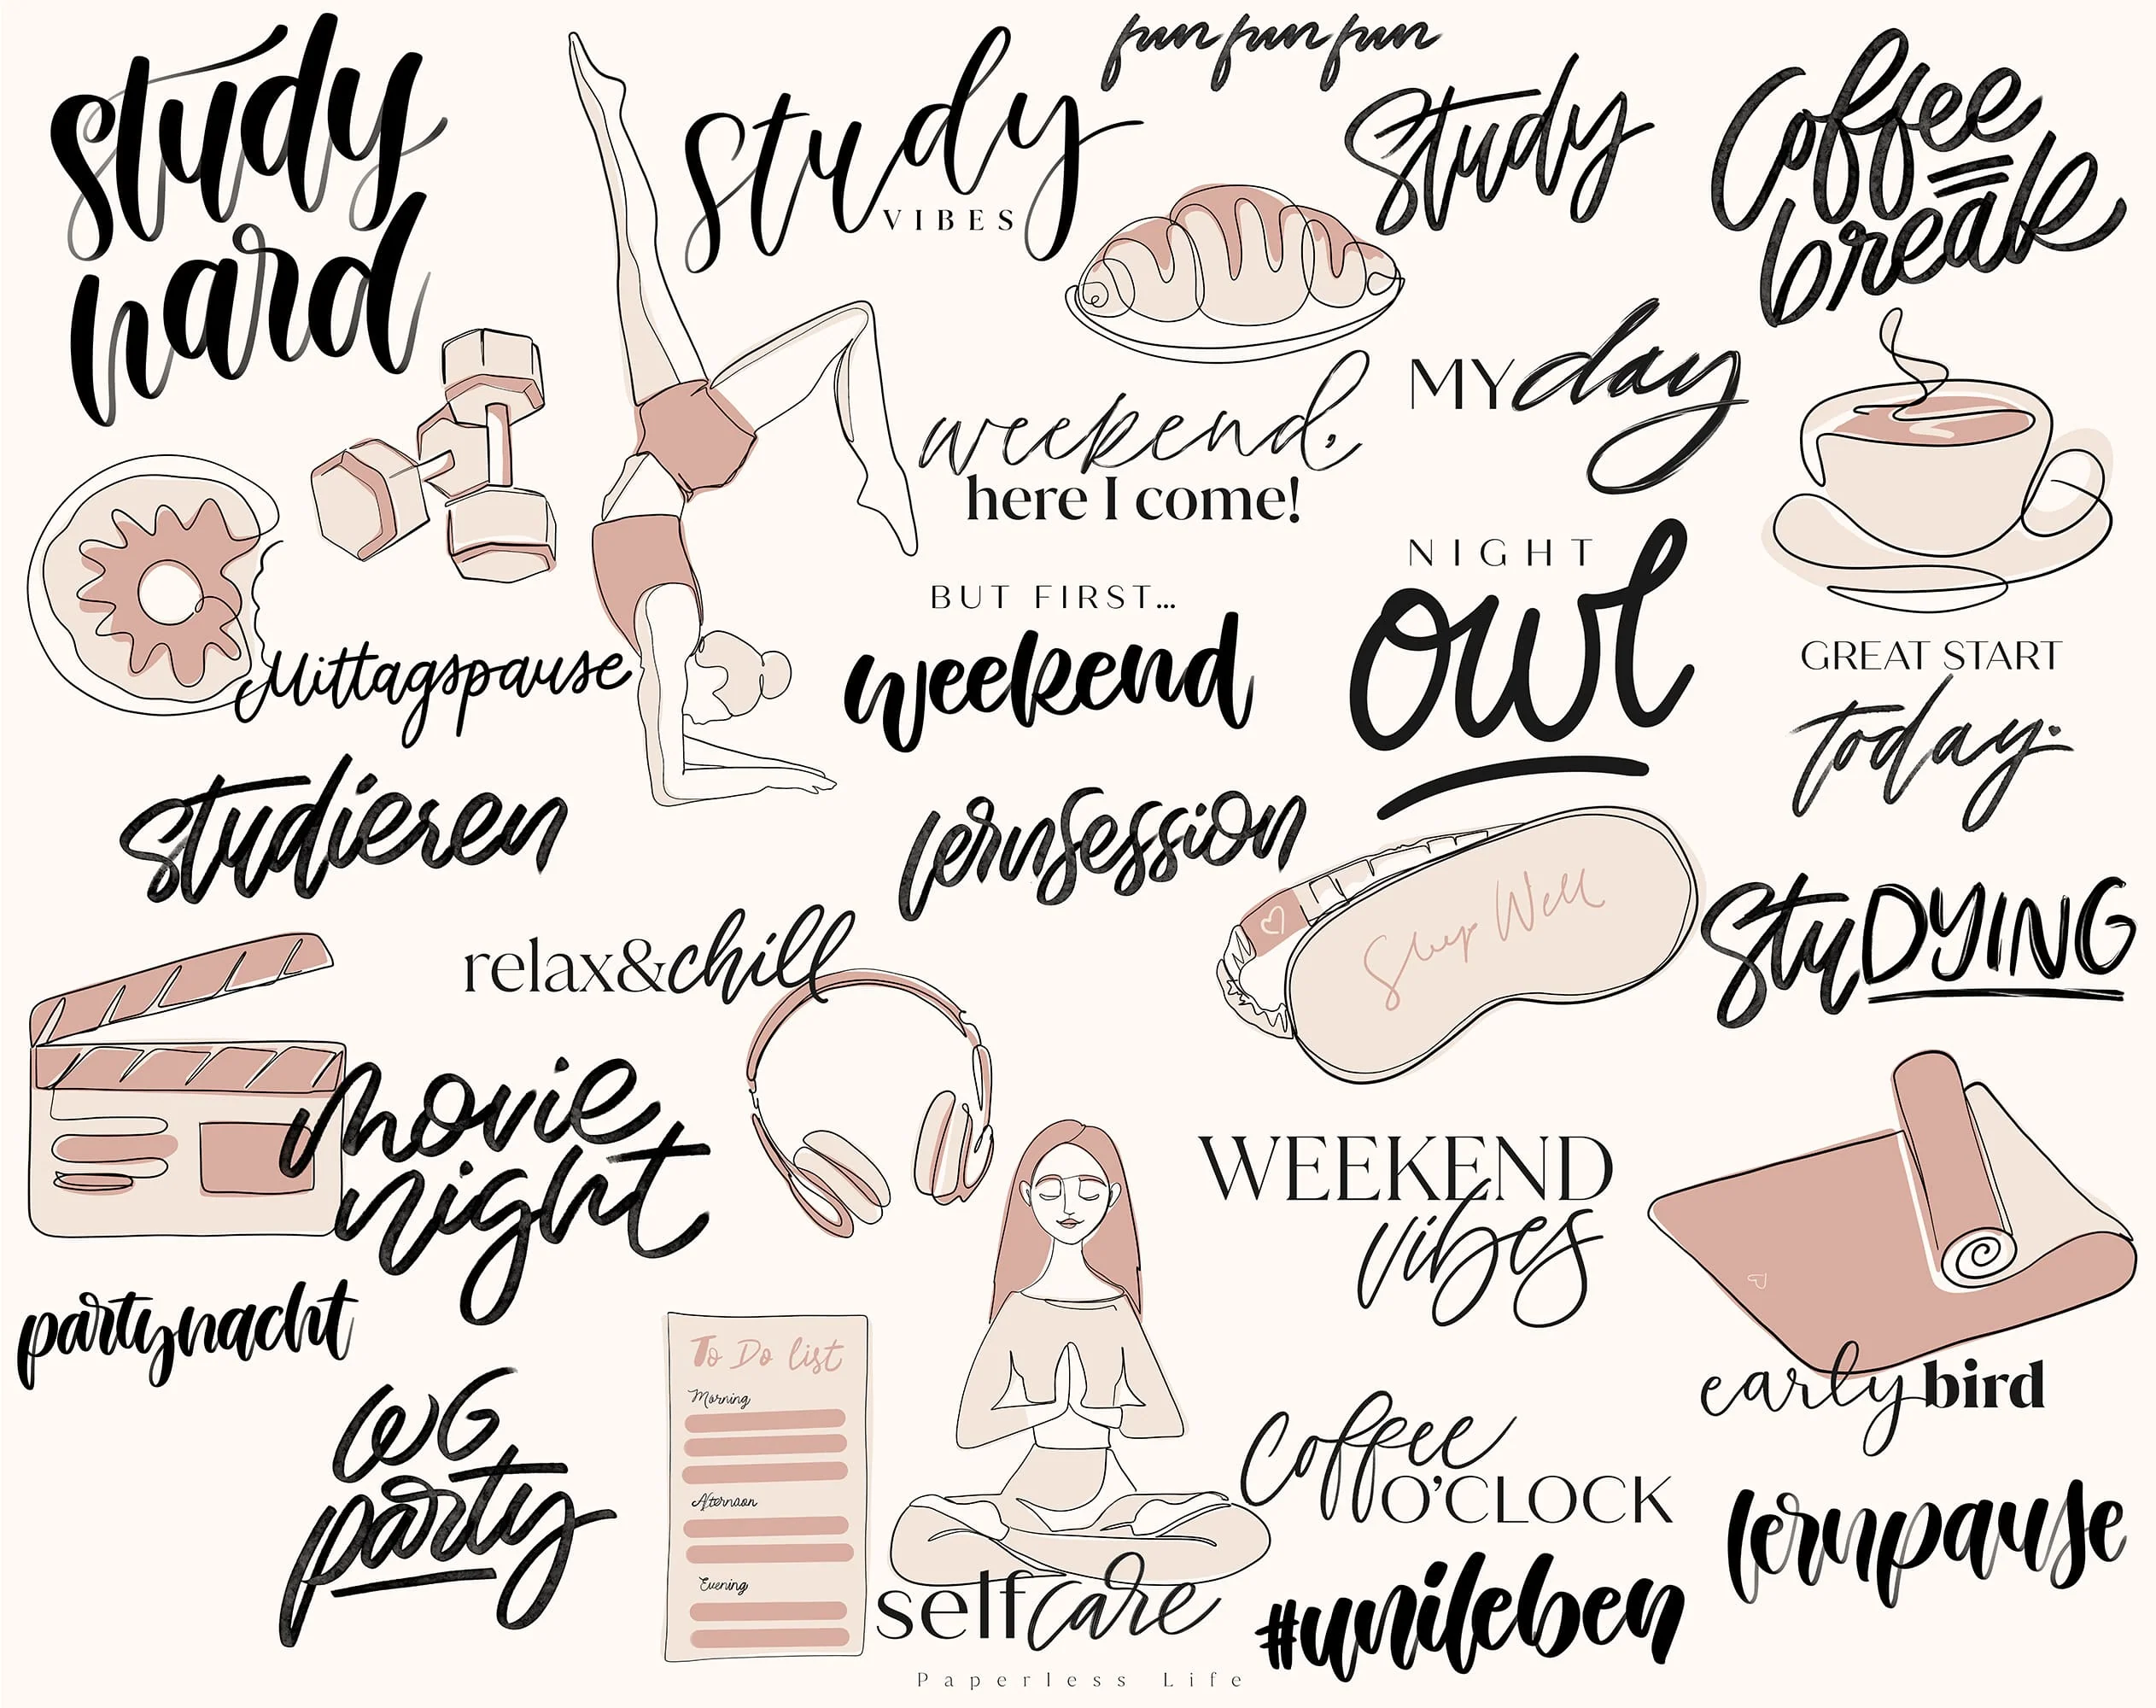 fun fun fun
study
hard
Study
VIBES
Study
Coffee
break
MY day
weekend,
here I come!
NIGHT
owl
BUT FIRST...
weekend
GREAT START
today.
Mittagspause
studieren
lernsession
Sleep Well
StuDYING
relax&chill
movie
night
WEEKEND
vibes
partynacht
early bird
To Do list
Morning
Afternoon
Evening
WG
party
Coffee
O'CLOCK
lernpause
selfcare
#unileben
Paperless Life